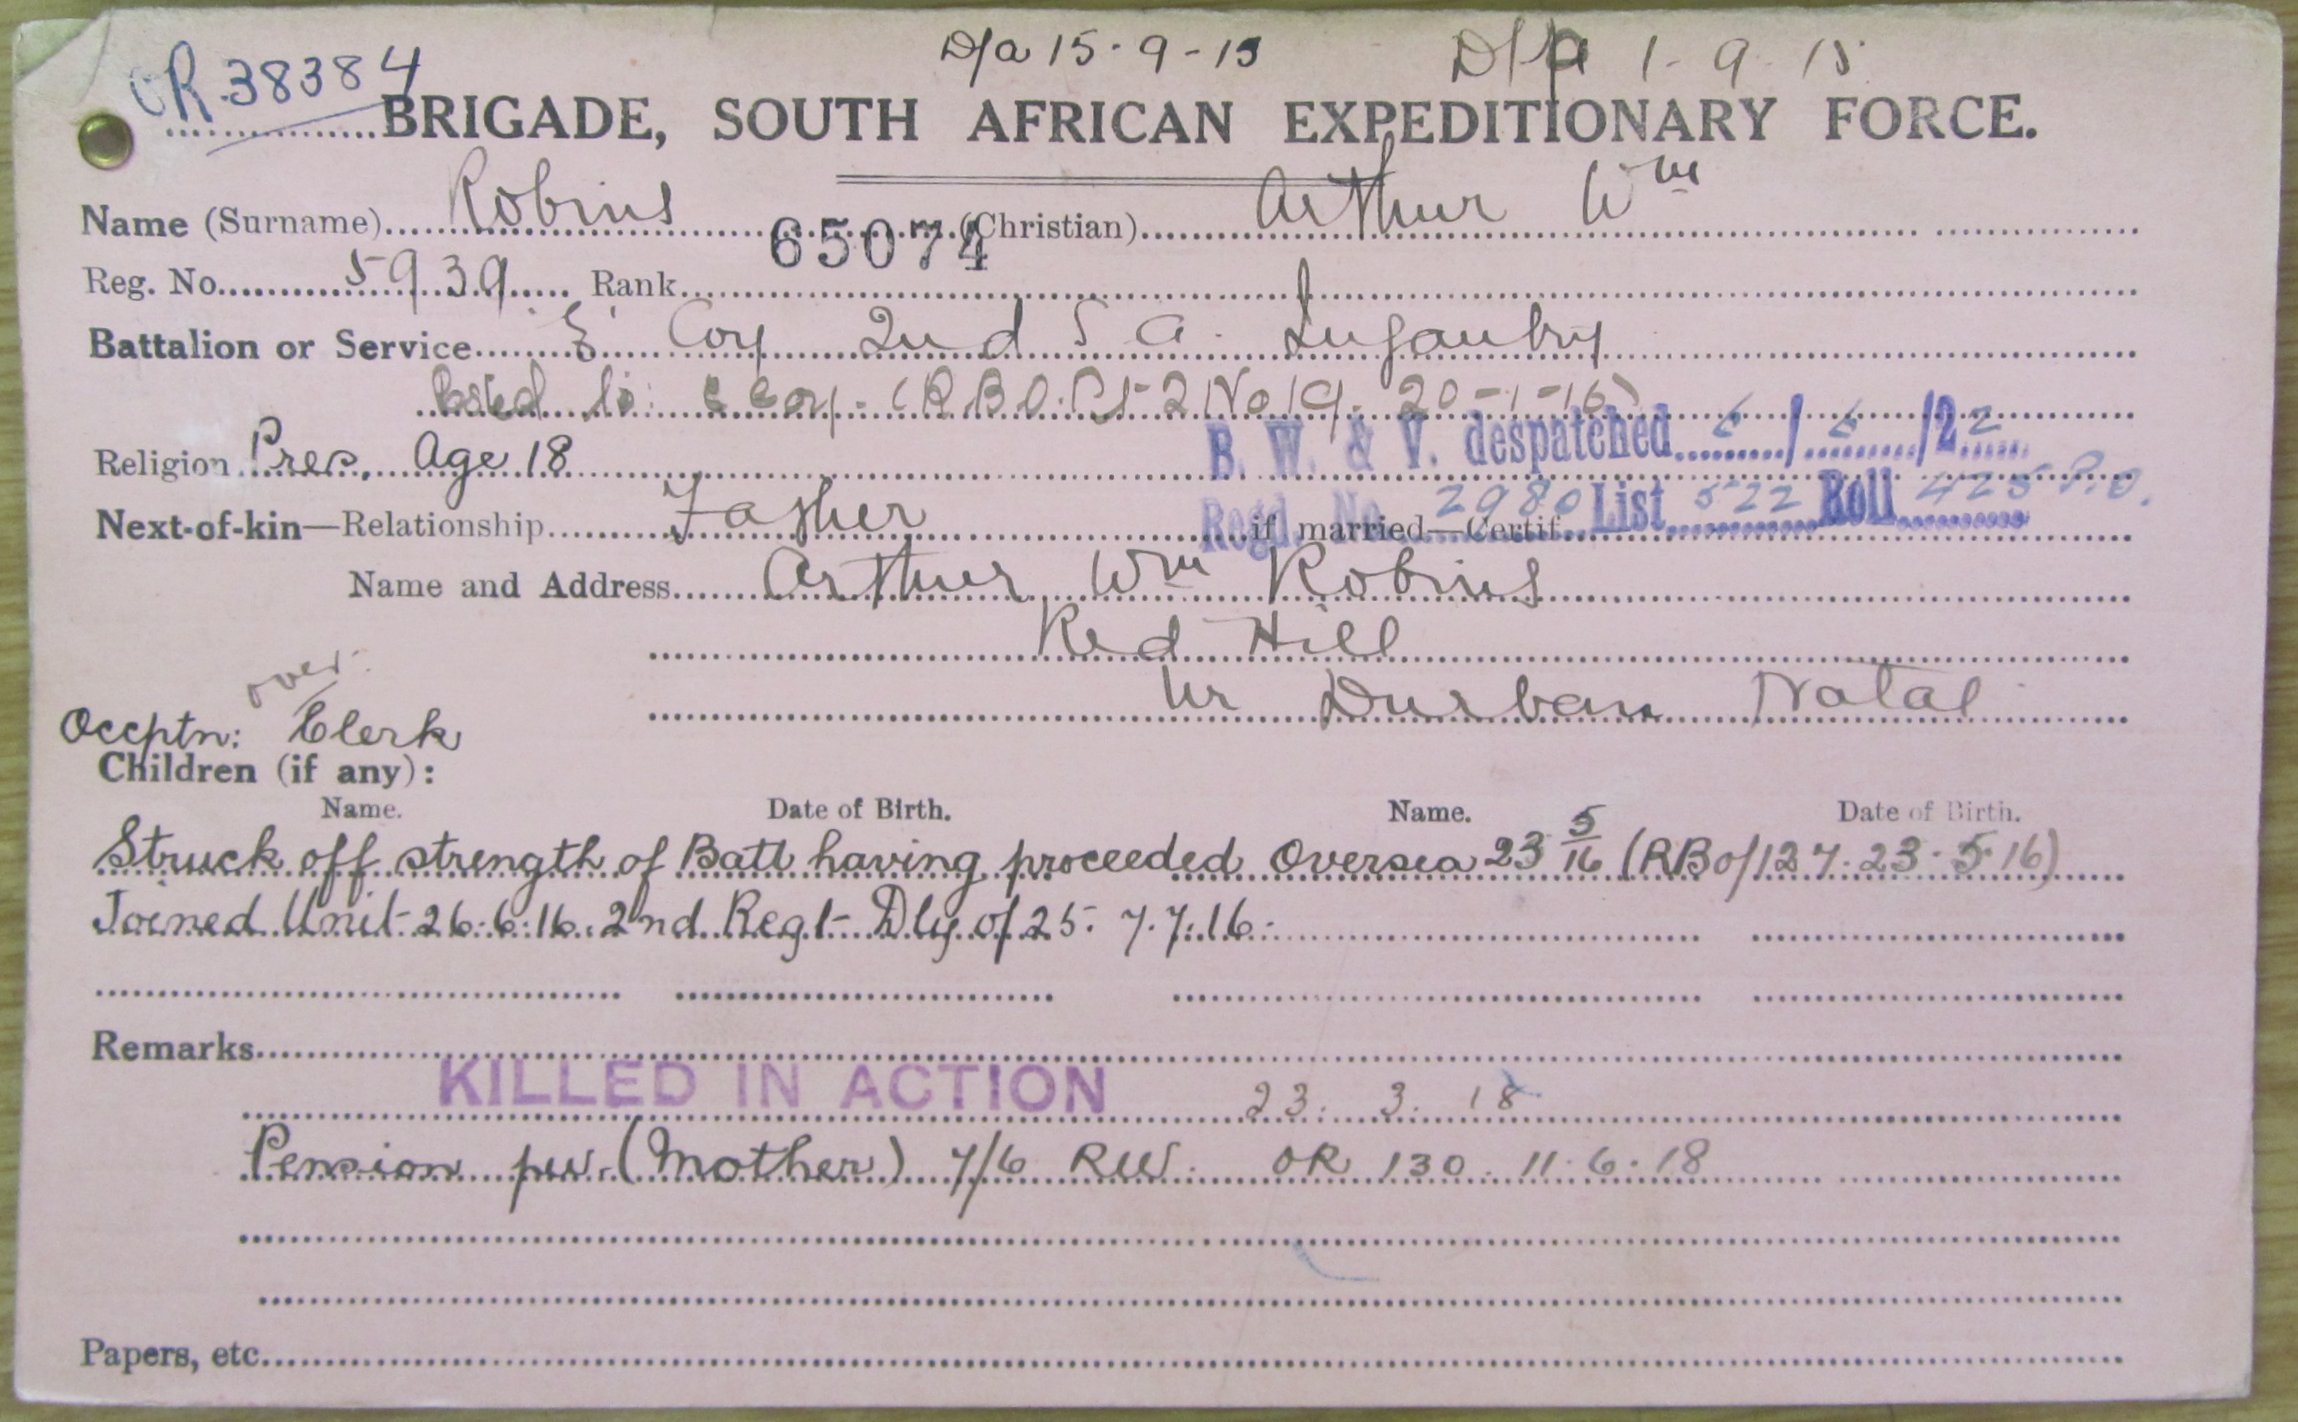 OR 38384 D/a 15-9-15 D/P 1-9-15
BRIGADE, SOUTH AFRICAN EXPEDITIONARY FORCE.
Name (Surname) Robins 65074 (Christian) Arthur Wm
Reg. No. 5939 Rank
Battalion or Service E Coy 2nd S A Infantry
Posted to C Coy. (R B O. Pt 2 No 19. 20-1-16)
Religion Pres. Age 18 B. W. & V. despatched 6/6/22
Next-of-kin—Relationship Father if married—Certif.
Regd. No. 2980 List 522 Roll 425 P.O.
Name and Address Arthur Wm Robins
Red Hill
over
Nr Durban Natal
Occptn: Clerk
Children (if any):
Name. Date of Birth. Name. Date of Birth.
Struck off strength of Batt having proceeded Oversea 23 5/16 (RBo/127. 23.5.16)
Joined Unit 26.6.16. 2nd Regt Dly of 25. 7.7.16.
Remarks
KILLED IN ACTION 23. 3. 18
Pension pw. (Mother) 7/6 RW. OR 130. 11.6.18
Papers, etc.